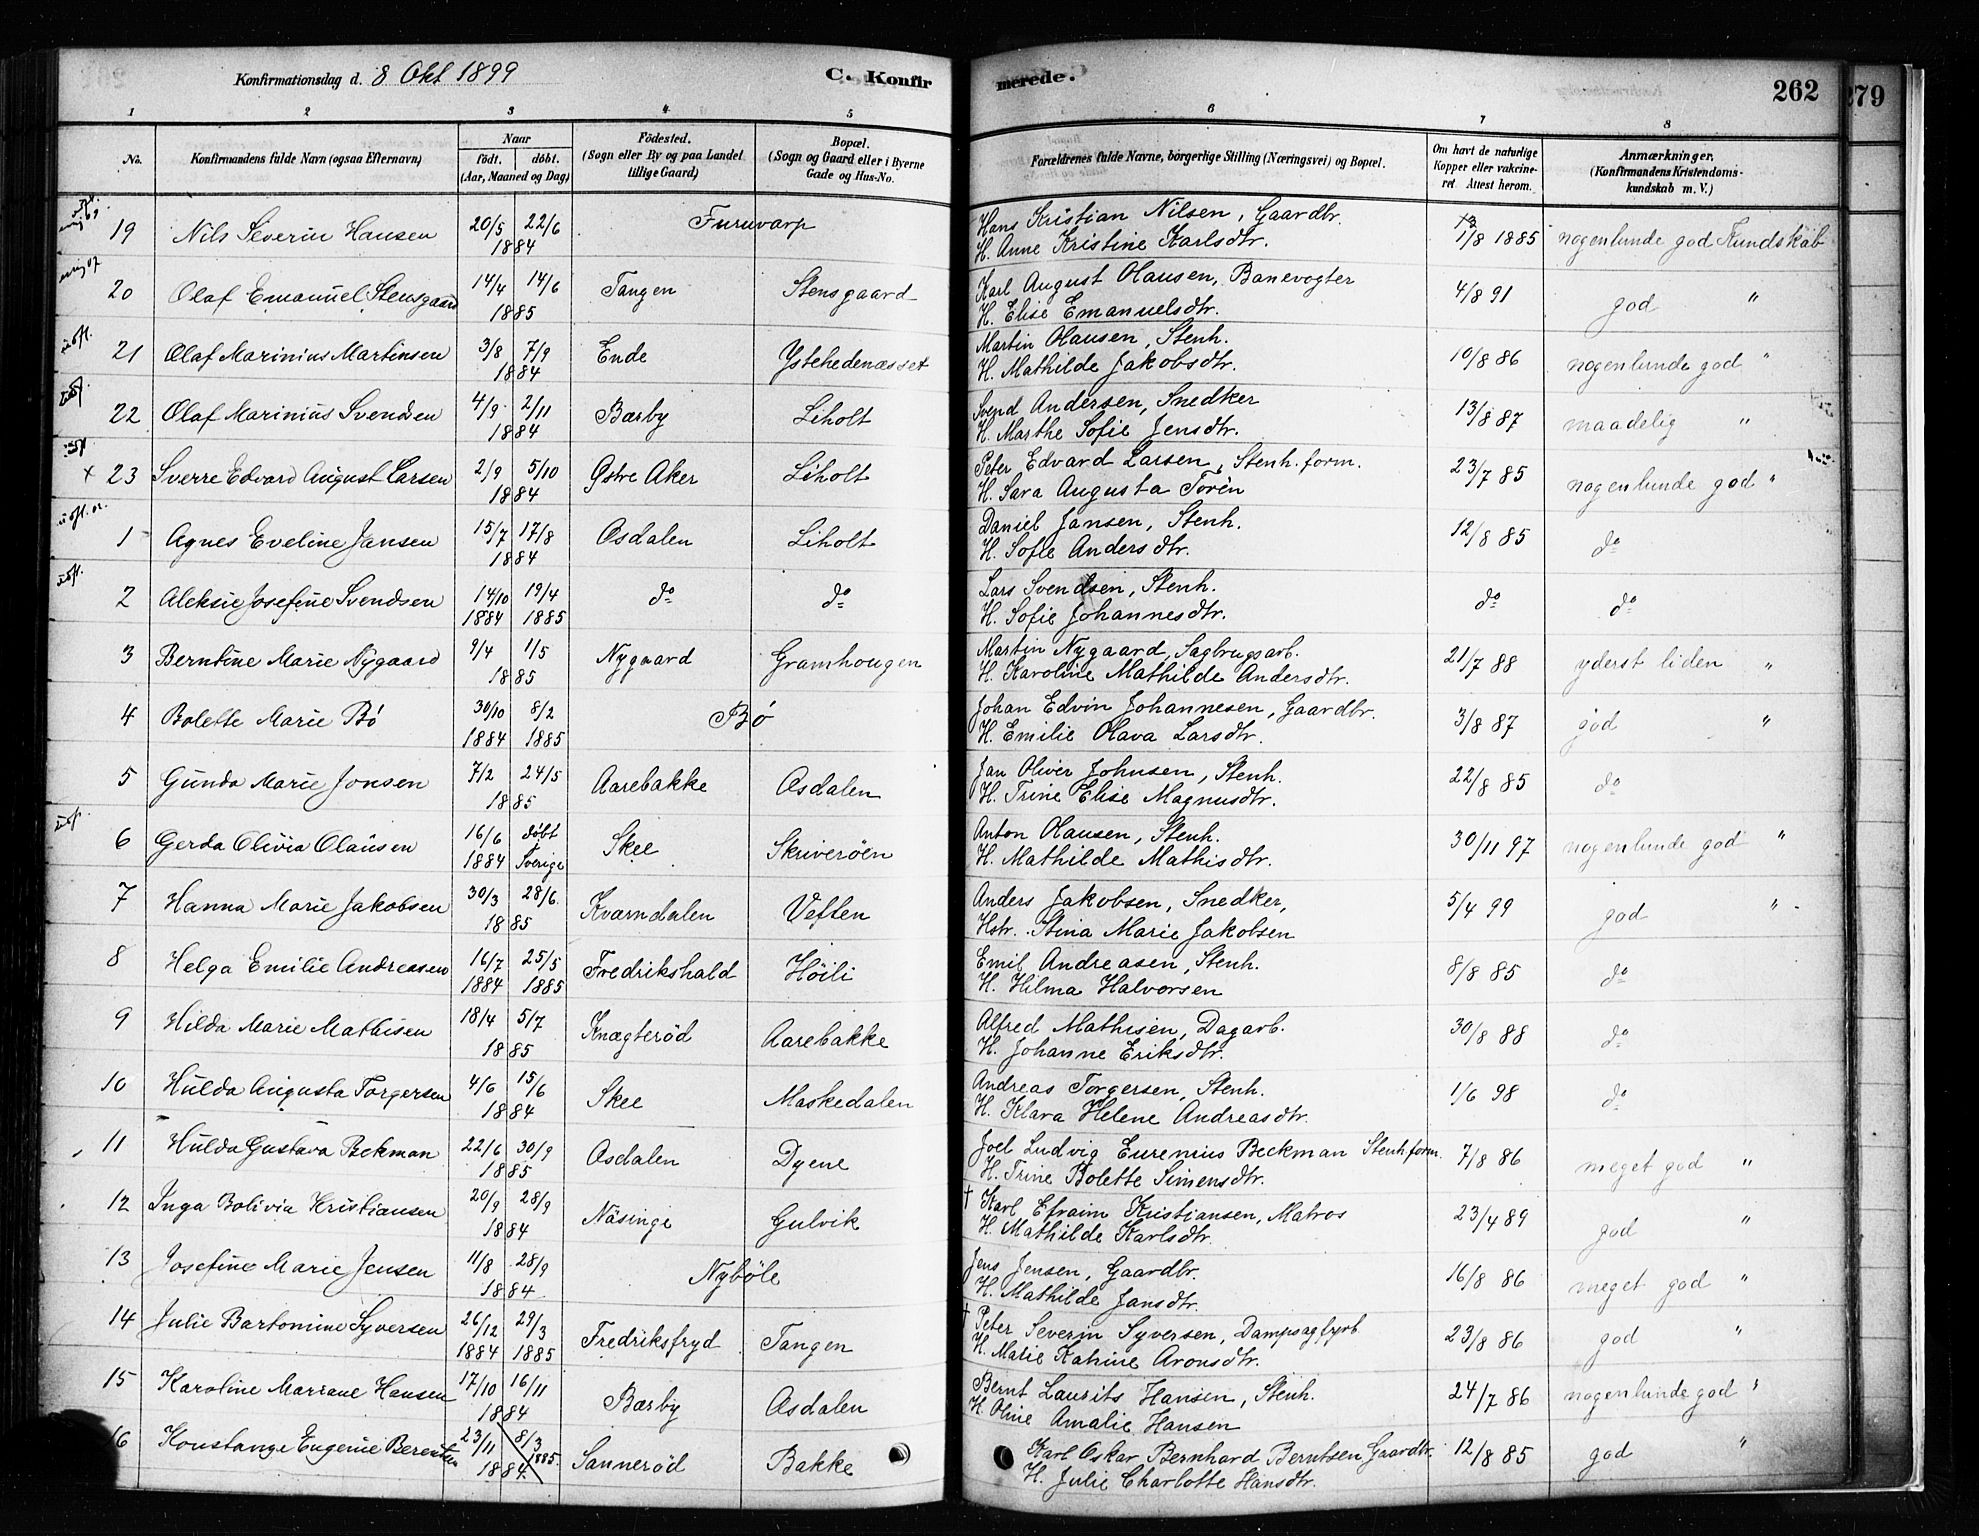 Konfirmationsdag d. 8 Okt 1899 C. Konfirmerede. 262 279
1 2 3 4 5 6 7 8
No. Konfirmandens fulde Navn (ogsaa Efternavn) Naar født. døbt. (Aar, Maaned og Dag) Fødested. (Sogn eller By og paa Landet tillige Gaard) Bopæl. (Sogn og Gaard eller i Byerne Gade og Hus-No. Forældrenes fulde Navne, borgerlige Stilling (Næringsvei) og Bopæl. Om havt de naturlige Kopper eller vakcineret. Attest herom. Anmærkninger. (Konfirmandens Kristendomskundskab m. V.)
19 Nils Severin Hansen 20/5 22/6 1884 Furuvarp Hans Kristian Nilsen, Gaardbr. 1/8 1885 nogenlunde god Kundskab
H. Anne Kristine Karlsdtr.
20 Olaf Emanuel Stensgaard 14/4 14/6 1885 Tangen Stensgaard Karl August Olausen, Banevogter 4/8 91 god "
H. Elise Emanuelsdtr.
21 Olaf Marinius Martinsen 3/8 7/9 1884 Ende Ystehedenæsset Martin Olausen, Stenh. 10/8 86 nogenlunde god "
H. Mathilde Jakobsdtr.
22 Olaf Marinius Svendsen 4/9 2/11 1884 Bærby Liholt Svend Andersen, Snedker 13/8 87 maadelig "
H. Marthe Sofie Jensdtr.
+ 23 Sverre Edvard August Larsen 2/9 5/10 1884 Østre Aker Liholt Peter Edvard Larsen, Stenh. form. 23/7 85 nogenlunde god "
H. Sara Augusta Torén
1 Agnes Eveline Jansen 15/7 17/8 1884 Osdalen Liholt Daniel Jansen, Stenh. 12/8 85 do
H. Sofie Andersdtr.
2 Aleksie Josefine Svendsen 14/10 1884 19/4 1885 do do Lars Svendsen, Stenh. do do
H. Sofie Johannesdtr.
3 Berntine Marie Nygaard 9/4 1/5 1885 Nygaard Gramhougen Martin Nygaard, Sagbrugsarb. 21/7 88 yderst liden "
H. Karoline Mathilde Andersdtr.
4 Bolette Marie Bø 30/10 1884 8/2 1885 Bø Johan Edvin Johannesen, Gaardbr. 3/8 87 god "
H. Emilie Olava Larsdtr.
5 Gunda Marie Jonsen 7/2 24/5 1885 Aarebakke Osdalen Jan Oliver Johnsen, Stenh. 22/8 85 do
H. Trine Elise Magnusdtr.
6 Gerda Olivia Olausen 16/6 1884 døbt i Sverige Skee Skriverøen Anton Olausen, Stenh. 30/11 97 nogenlunde god "
H. Mathilde Mathisdtr.
7 Hanna Marie Jakobsen 30/3 28/6 1885 Kværndalen Veften Anders Jakobsen, Snedker, 5/4 99 god "
Hstr. Stina Marie Jakobsen
8 Helga Emilie Andreasen 16/7 1884 25/5 1885 Fredrikshald Høili Emil Andreasen, Stenh. 8/8 85 do
H. Hilma Halvorsen
9 Hilda Marie Mathisen 18/4 5/7 1885 Knægterød Aarebakke Alfred Mathisen, Dagarb. 30/8 88 do
H. Johanne Eriksdtr.
10 Hulda Augusta Torgersen 4/6 15/6 1884 Skee Maskedalen Andreas Torgersen, Stenh. 1/6 98 do
H. Klara Helene Andreasdtr.
11 Hulda Gustava Bekman 22/6 30/9 1885 Osdalen Dyene Joel Ludvig Eurenius Beckman Stenh form. 7/8 86 meget god "
H. Trine Bolette Simensdtr.
12 Inga Bolivia Kristiansen 20/9 28/9 1884 Näsinge Gulvik † Karl Efraim Kristiansen, Matros 23/4 89 god "
H. Mathilde Karlsdtr.
13 Josefine Marie Jensen 11/8 28/9 1884 Nybøle Jens Jensen, Gaardbr. 16/8 86 meget god "
H. Mathilde Jansdtr.
14 Julie Bartomine Syversen 26/12 1884 29/3 1885 Fredriksfryd Tangen † Peter Severin Syversen, Dampsagfyrb. 23/8 86 god "
H. Marie Katrine Aronsdtr.
15 Karoline Mariane Hansen 17/10 16/11 1884 Bærby Osdalen Bernt Laurits Hansen, Stenh. 24/7 86 nogenlunde god "
H. Oline Amalie Hansen
16 Konstange Eugenie Berentsen 23/11 1884 8/3 1885 Sannerød Bakke Karl Oskar Bernhard Berntsen, Gaardbr. 12/8 85 god "
H. Julie Charlotte Hansdtr.